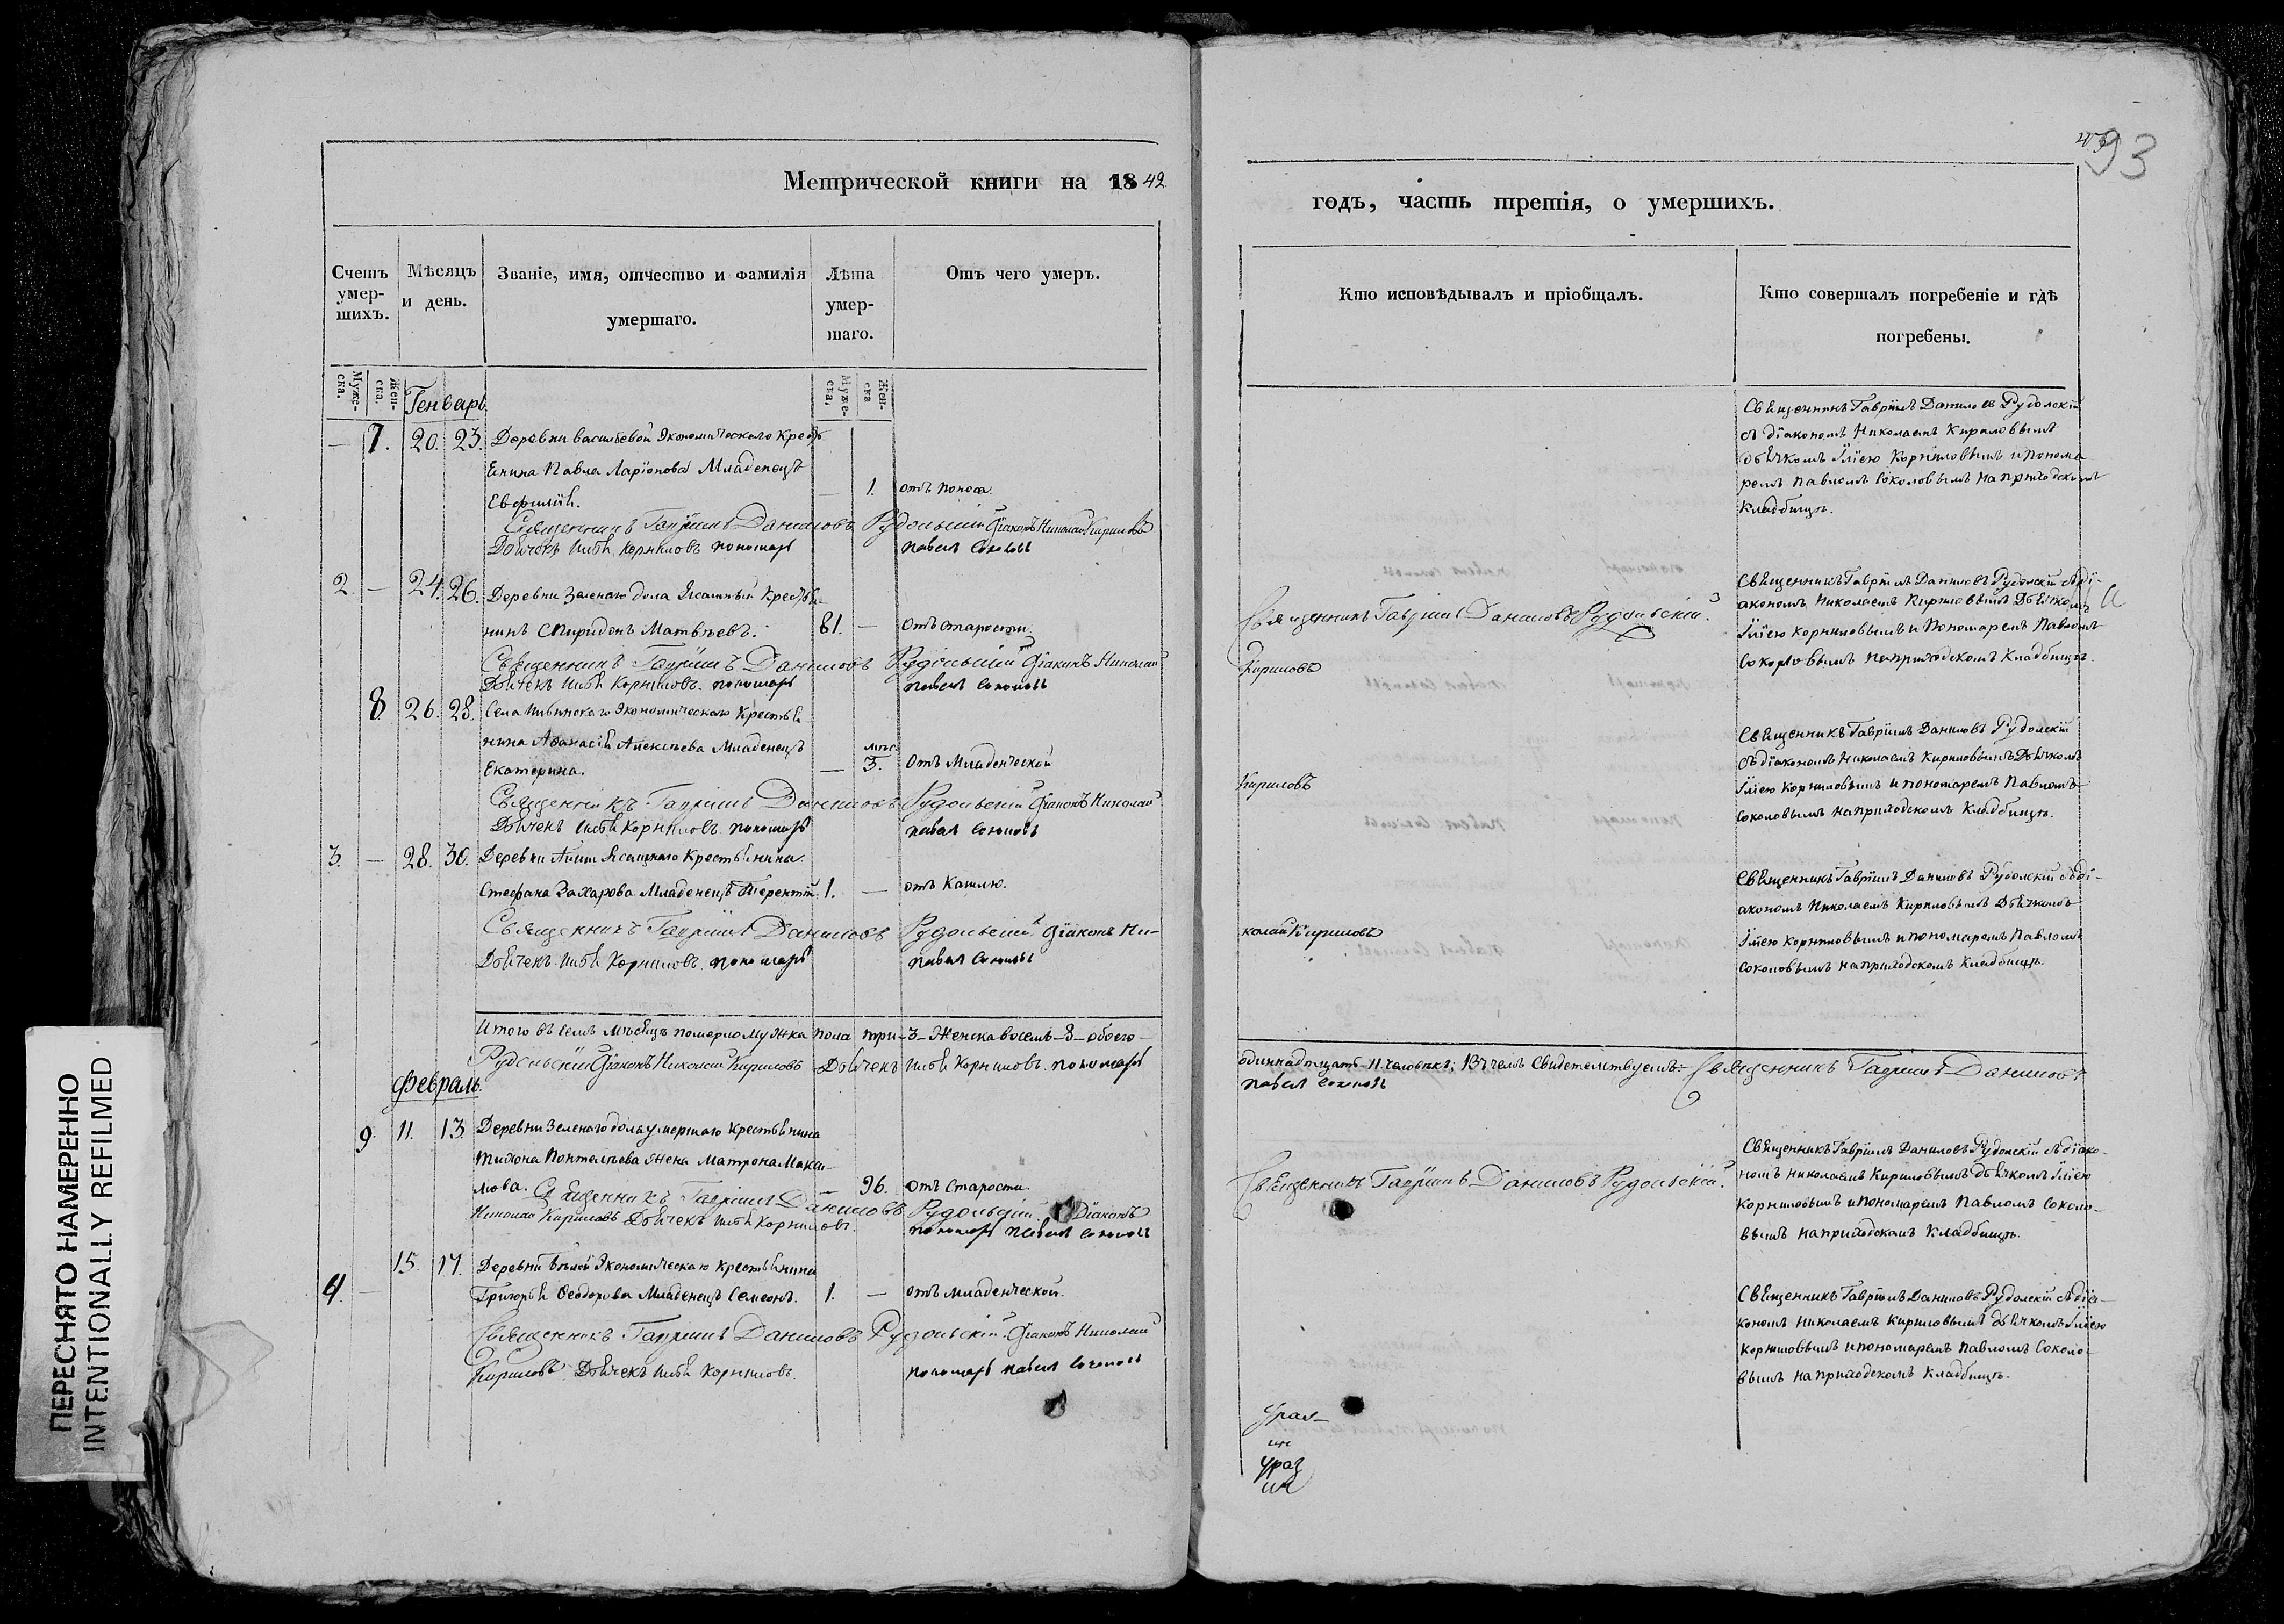 Метрической книги на 1842
Счетъ умер-шихъ.
Мѣсяцъ и день.
Званіе, имя, отчество и фамилія умершаго.
Лѣта умер-шаго.
Отъ чего умеръ.
Муже-ска.
Жен-ска.
Муже-ска,
Жен-ска
Генварь
— 7. 20. 23. Деревни Васильевой Экономическаго Кресть
янина Павла Ларіонова Младенецъ
Евфимія. — 1. отъ поноса.
Священникъ Гавріилъ Даниловъ Рудольскій Діаконъ Николай Кириловъ
Дьячекъ Илья Корниловъ пономарь Павелъ Соколовъ
2. — 24. 26. Деревни Зеленаго дола Ясашный Крестья-
нинъ Спиридонъ Матвѣевъ. 81. — отъ старости.
Священникъ Гавріилъ Даниловъ Рудольскій Діаконъ Николай
Дьячекъ Илья Корниловъ. пономарь Павелъ Соколовъ
8. 26. 28. Села Ильинскаго Экономическаго Крестья
нина Аѳанасія Алексѣева Младенецъ мѣс.
Екатерина. — 3. отъ Младенческой
Священникъ Гавріилъ Даниловъ Рудольскій Діаконъ Николай
Дьячекъ Илья Корниловъ. пономарь Павелъ Соколовъ
3. — 28. 30. Деревни Ясашнаго Крестьянина
Стефана Захарова Младенецъ Терентій. 1. — отъ Кашлю.
Священникъ Гавріилъ Даниловъ Рудольскій Діаконъ Ни-
Дьячекъ Илья Корниловъ. пономарь Павелъ Соколовъ
Итого въ семъ мѣсяцѣ померло мужка пола три-3-Женска восемь-8-обоего-
Рудольскій Діаконъ Николай Кириловъ Дьячекъ Илья Корниловъ. пономарь
Февраль.
9. 11. 13. Деревни Зеленаго дола умершаго Крестьянина
Тихона Пантелѣева Жена Матрона Макси-
мова. — 96. отъ Старости.
Священникъ Гавріилъ Даниловъ Рудольскій Діаконъ
Николай Кириловъ Дьячекъ Илья Корниловъ. пономарь Павелъ Соколовъ
4. — 15. 17. Деревни Бѣлой Экономическаго Крестьянина
Григорья Ѳеодорова Младенецъ Симеонъ. 1. — отъ младенческой.
Священникъ Гавріилъ Даниловъ Рудольскій. Діаконъ Николай
Кириловъ Дьячекъ Илья Корниловъ. пономарь Павелъ Соколовъ
93
годъ, часть третія, о умершихъ.
Кто исповѣдывалъ и пріобщалъ.
Кто совершалъ погребеніе и гдѣ погребены.
Священникъ Гавріилъ Даниловъ Рудолскій
съ діакономъ Николаемъ Кириловымъ
дьячкомъ Ильею Корниловымъ и понома
ремъ Павломъ Соколовымъ на приходскомъ
Кладбищѣ.
Священникъ Гавріилъ Даниловъ Рудольскій.
Кириловъ
Священникъ Гавріилъ Даниловъ Рудолскій съ ді-
акономъ Николаемъ Кириловымъ Дьячкомъ
Ильею Корниловымъ и Пономаремъ Павломъ
Соколовымъ на приходскомъ Кладбищѣ.
Кириловъ
Священникъ Гавріилъ Даниловъ Рудолскій
съ діакономъ Николаемъ Кириловымъ Дьячкомъ
Ильею Корниловымъ и пономаремъ Павломъ
Соколовымъ на приходскомъ Кладбищѣ.
колай Кириловъ
Священникъ Гавріилъ Даниловъ Рудолскій съ ді-
акономъ Николаемъ Кириловымъ Дьячкомъ
Ильею Корниловымъ и пономаремъ Павломъ
Соколовымъ на приходскомъ Кладбищѣ.
одиннадцать-11 человѣкъ; Въ чемъ Свидетельствуемъ:- Священникъ Гавріилъ Даниловъ
Павелъ Соколовъ
Священникъ Гавріилъ Даниловъ Рудольскій.
Священникъ Гавріилъ Даниловъ Рудолскій съ діако-
номъ Николаемъ Кириловымъ дьячкомъ Ильею
Корниловымъ и пономаремъ Павломъ Соколо-
вымъ на приходскомъ Кладбищѣ.
Священникъ Гавріилъ Даниловъ Рудолскій съ діа-
кономъ Николаемъ Кириловымъ дьячкомъ Ильею
Корниловымъ и пономаремъ Павломъ Соколо-
вымъ на приходскомъ Кладбищѣ.
ПЕРЕСНЯТО НАМЕРЕННО
INTENTIONALLY REFILMED